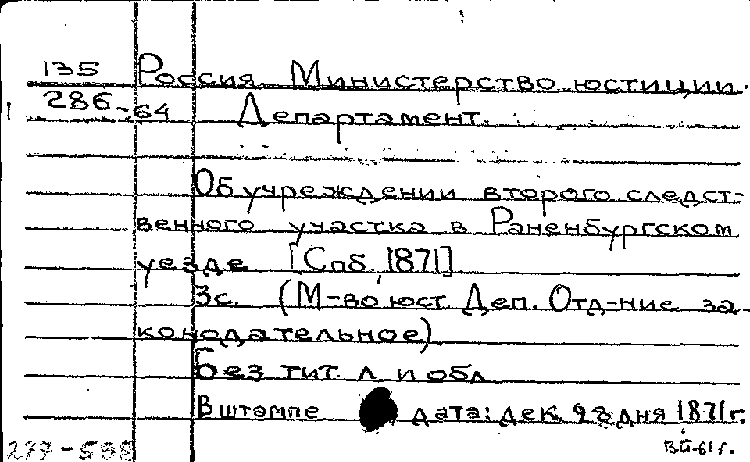 135 Россия Министерство юстиции.
286-64 Департамент.
Об учреждении второго следст-
венного участка в Раненбургском
уезде [Спб. 1871]
3с. (М-во юст. Деп. Отд-ние за-
конодательное)
Без тит. л. и обл.
В штампе дата: дек. 23 дня 1871 г.
277-598